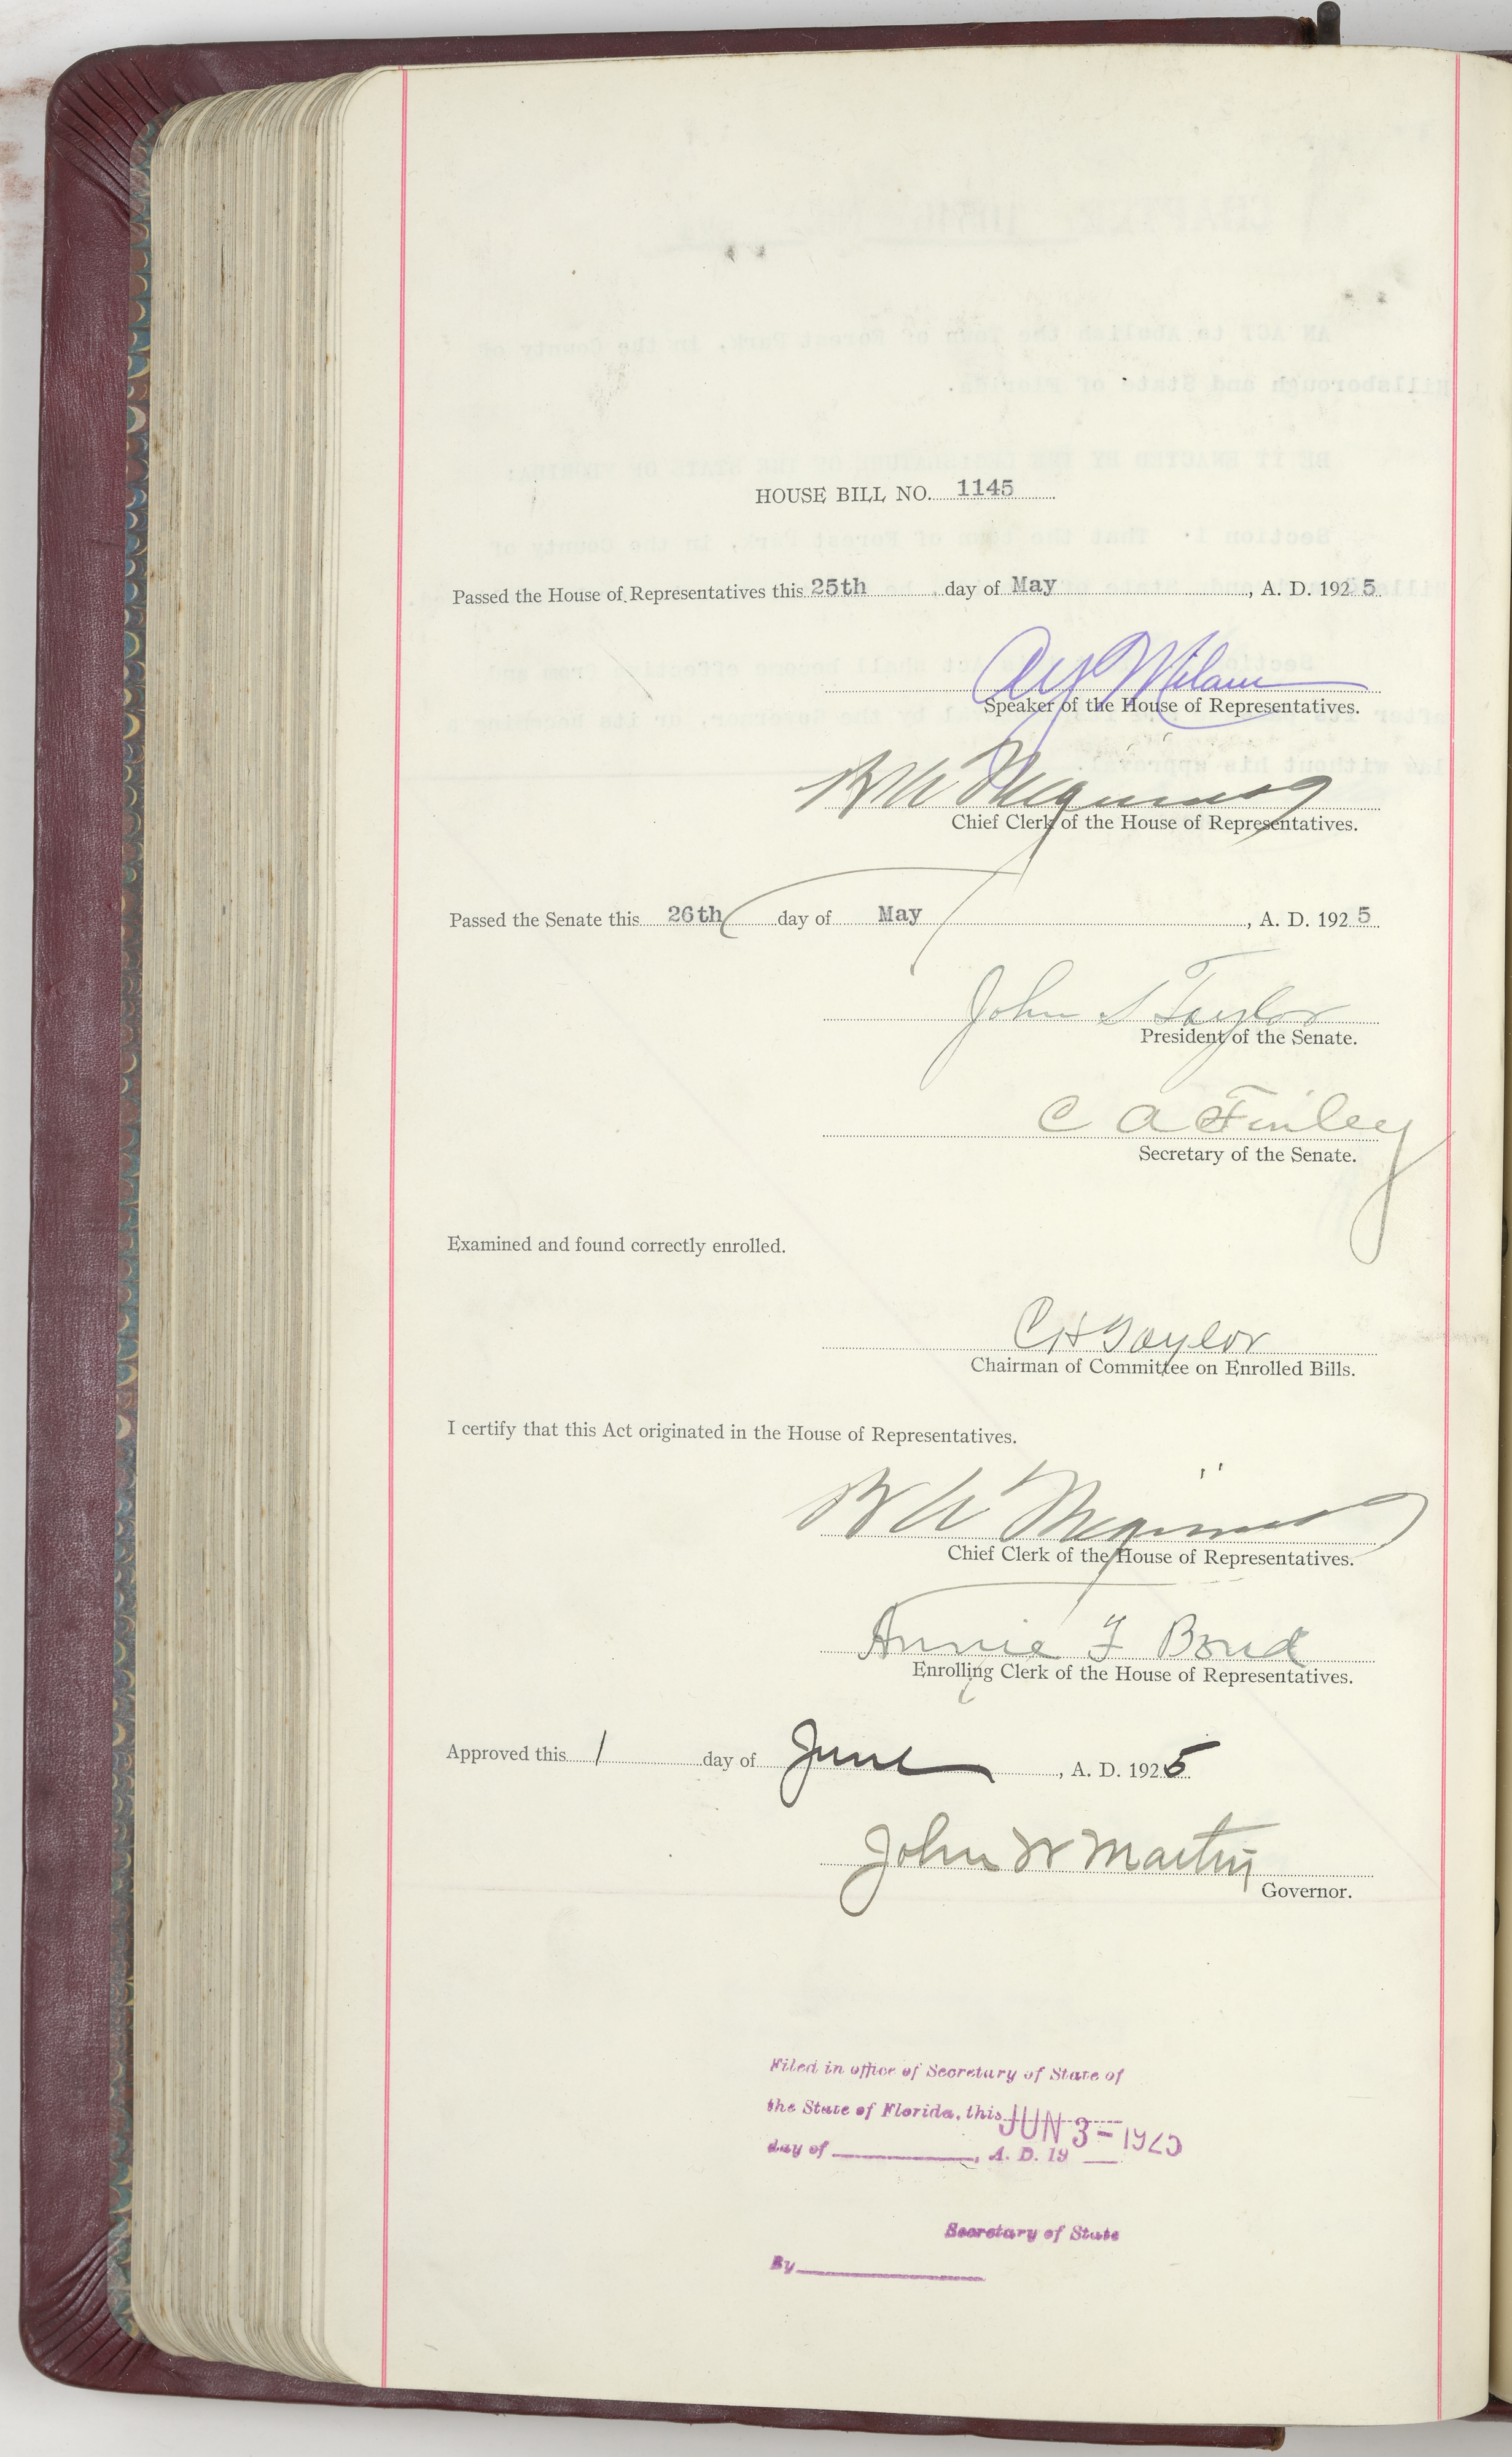 HOUSE BILL NO. 1145
Passed the House of Representatives this 25th day of May, A. D. 1925
A Y Milam
Speaker of the House of Representatives.
B A Meginniss
Chief Clerk of the House of Representatives.
Passed the Senate this 26th day of May, A. D. 1925
John S Taylor
President of the Senate.
C A Finley
Secretary of the Senate.
Examined and found correctly enrolled.
C H Taylor
Chairman of Committee on Enrolled Bills.
I certify that this Act originated in the House of Representatives.
B A Meginniss
Chief Clerk of the House of Representatives.
Annie F Bond
Enrolling Clerk of the House of Representatives.
Approved this 1 day of June, A. D. 1925
John W Martin
Governor.
Filed in office of Secretary of State of
the State of Florida, this JUN 3-1925
day of , A. D. 19
Secretary of State
By